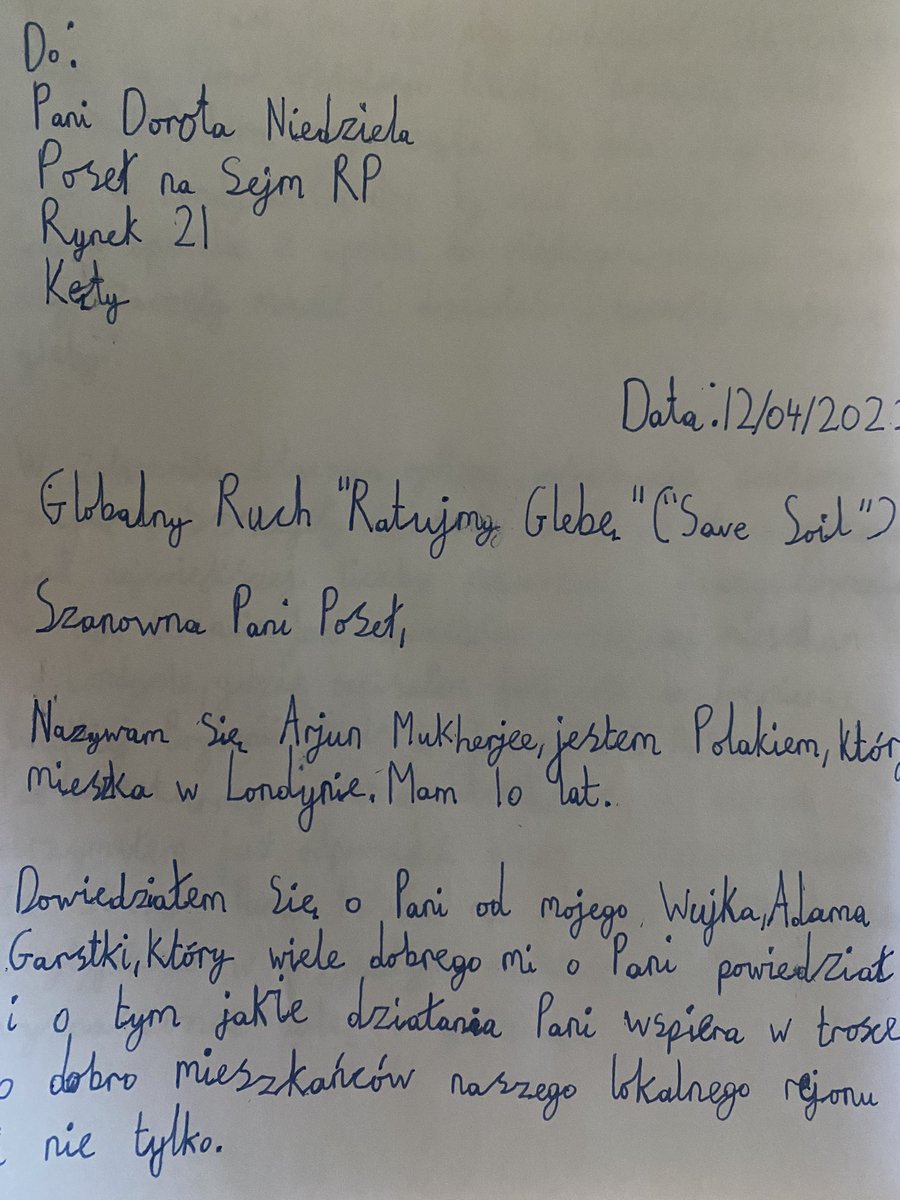 Do:
Pani Dorota Niedziela
Poseł na Sejm RP
Rynek 21
Kęty
Data: 12/04/202
Globalny Ruch "Ratujmy Glebę" ("Save Soil")
Szanowna Pani Poseł,
Nazywam się Arjun Mukherjee, jestem Polakiem, któr
mieszka w Londynie. Mam 10 lat.
Dowiedziałem się o Pani od mojego Wujka, Adama
Garstki, który wiele dobrego mi o Pani powiedział
i o tym jakie działania Pani wspiera w trosce
o dobro mieszkańców naszego lokalnego rejonu
i nie tylko.